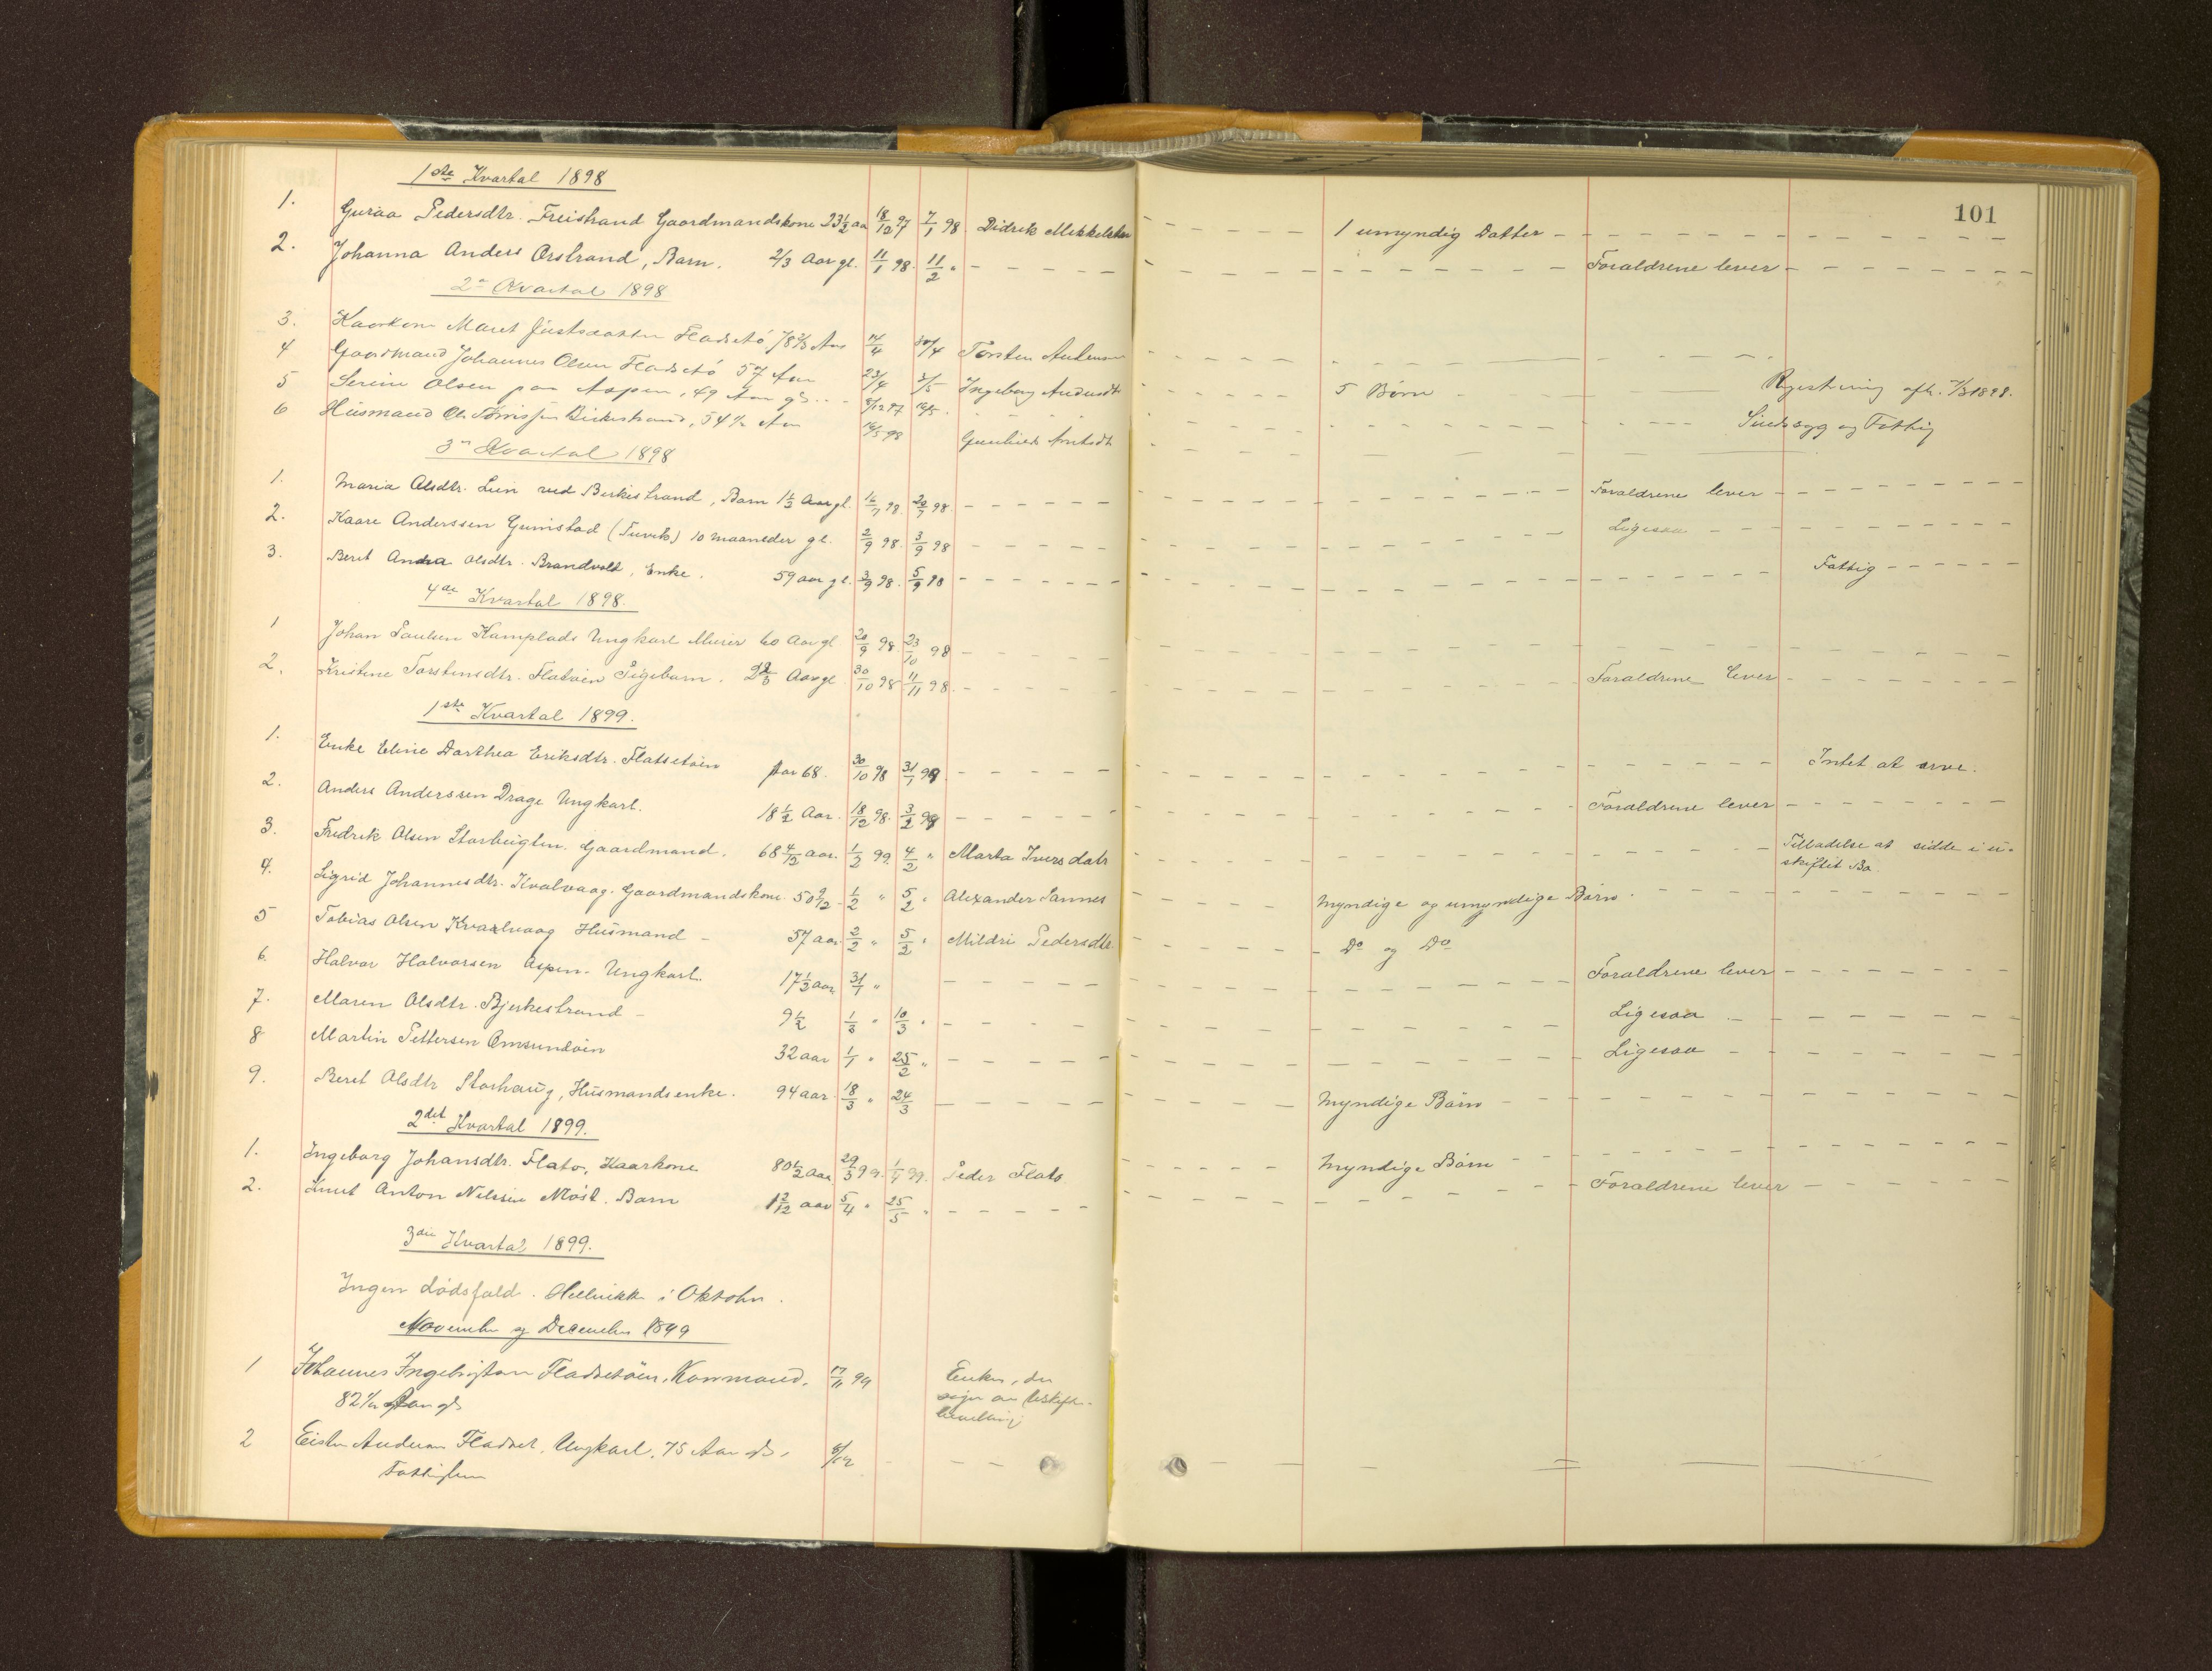 101
1ste Kvartal 1898
1. Guraa Pedersdtr. Freistrand Gaardmandskone 23½ aar 18/12 97 7/1 98 Didrik Mikkelsen - - - 1 umyndig Datter - - -
2. Johanna Anders Orstrand, Barn. 2/3 Aar gl. 11/1 98. 11/2 " - - - Foraldrene lever - - -
2n Kvartal 1898
3. Kaarkone Maret Fladsetö 78 2/3 Aar 30/4 Torsten
4 Gaardmand Johannes Olsen Fladsetö 57 Aar 23/4 3/5 Ingeborg - - - 5 Børn - - -
5 Serine Olsen paa Aspen, 49 Aar gl. 8/12 97 16/5. - - - Sindssyg og Fattig
6 Husmand Ole Birkestrand, 54½ Aar 16/5 98 Gunhild
3n Kvartal 1898
1. Maria Olsdtr. Lein ved Birkestrand, Barn 1½ Aar gl. 98. 20/7 98. - - - Foraldrene lever - - -
2. Kaare Anderssen Gunistad (Tuvik) 10 maaneder gl. 2/9 98. 3/9 98 - - - Ligesaa - - -
3. Beret Andrea Olsdtr. Brandvolt, Enke. 59 aar gl. 2/9 98. 5/9 98 - - - Fattig - - -
4de Kvartal 1898.
1 Johan Paulsen Kamplads Ungkarl Murer 60 Aar gl. 20/9 98. 23/10 98 - - -
2. Kristine Torstensdtr. Flatöen Pigebarn. Aar gl. 30/10 98 11/11 98. - - - Foraldrene lever - - -
1ste Kvartal 1899.
1. Enke Eline Dorthea Eriksdtr. Flatsetöin Aar 68. 30/10 98 31/1 99. - - - Intet at arve.
2. Anders Anderssen Drage Ungkarl. 18½ Aar. 18/12 98. 3/2 99 - - - Foraldrene lever - - -
3. Fredrik Olsen Storbugten. Gaardmand. 68 4/12 aar. 1/2 99. 4/2 " Marta Iversdatr - - - Tilladelse at sidde i u-
skiftet Bo.
4. Sigrid Johannesdtr. Kvalvaag. Gaardmandskone. 50 9/12 - 1/2 " 5/2 " Alexander Sannes - - - Myndige og umyndige Børn. - - -
5 Tobias Olsen Kvaalvaag Husmand - 57 aar. 2/2 " 5/2 " Mildri Pedersdtr. - - - Do og Do
6. Halvor Halvorsen Aspen. Ungkarl. 17½ aar 31/1 " - - - Foraldrene lever - - -
7. Maren Olsdtr. Bjerkestrand - 9½ 1/3 " 10/3 " - - - Ligesaa - - -
8 Martin Pettersen Omsundöin 32 aar 1/1 " 25/2 " - - - Ligesaa - - -
9. Beret Olsdtr Storhaug, Husmandsenke. 94 aar. 18/3 " 24/3 - - - Myndige Børn - - -
2det Kvartal 1899.
1. Ingeborg Johansdtr. Flatö, Kaarkone 80½ aar 29/3 99. 1/4 99. Peder Flatö - - - Myndige Børn - - -
2. Knut Anton Nilssen Möst. Barn 1 2/12 aar 5/4 " 25/5 " - - - Foraldrene lever - - -
3die Kvartal 1899.
Ingen dödsfald. i Oktober.
November og December 1899
1 Johannes Ingebrigtsen Fladsetöen, Kaarmand, 17/11 99 Enken, der
82½ Aar gl. siger
2 Anderssen Fladset, Ungkarl, 75 Aar gl., 8/12 - - -